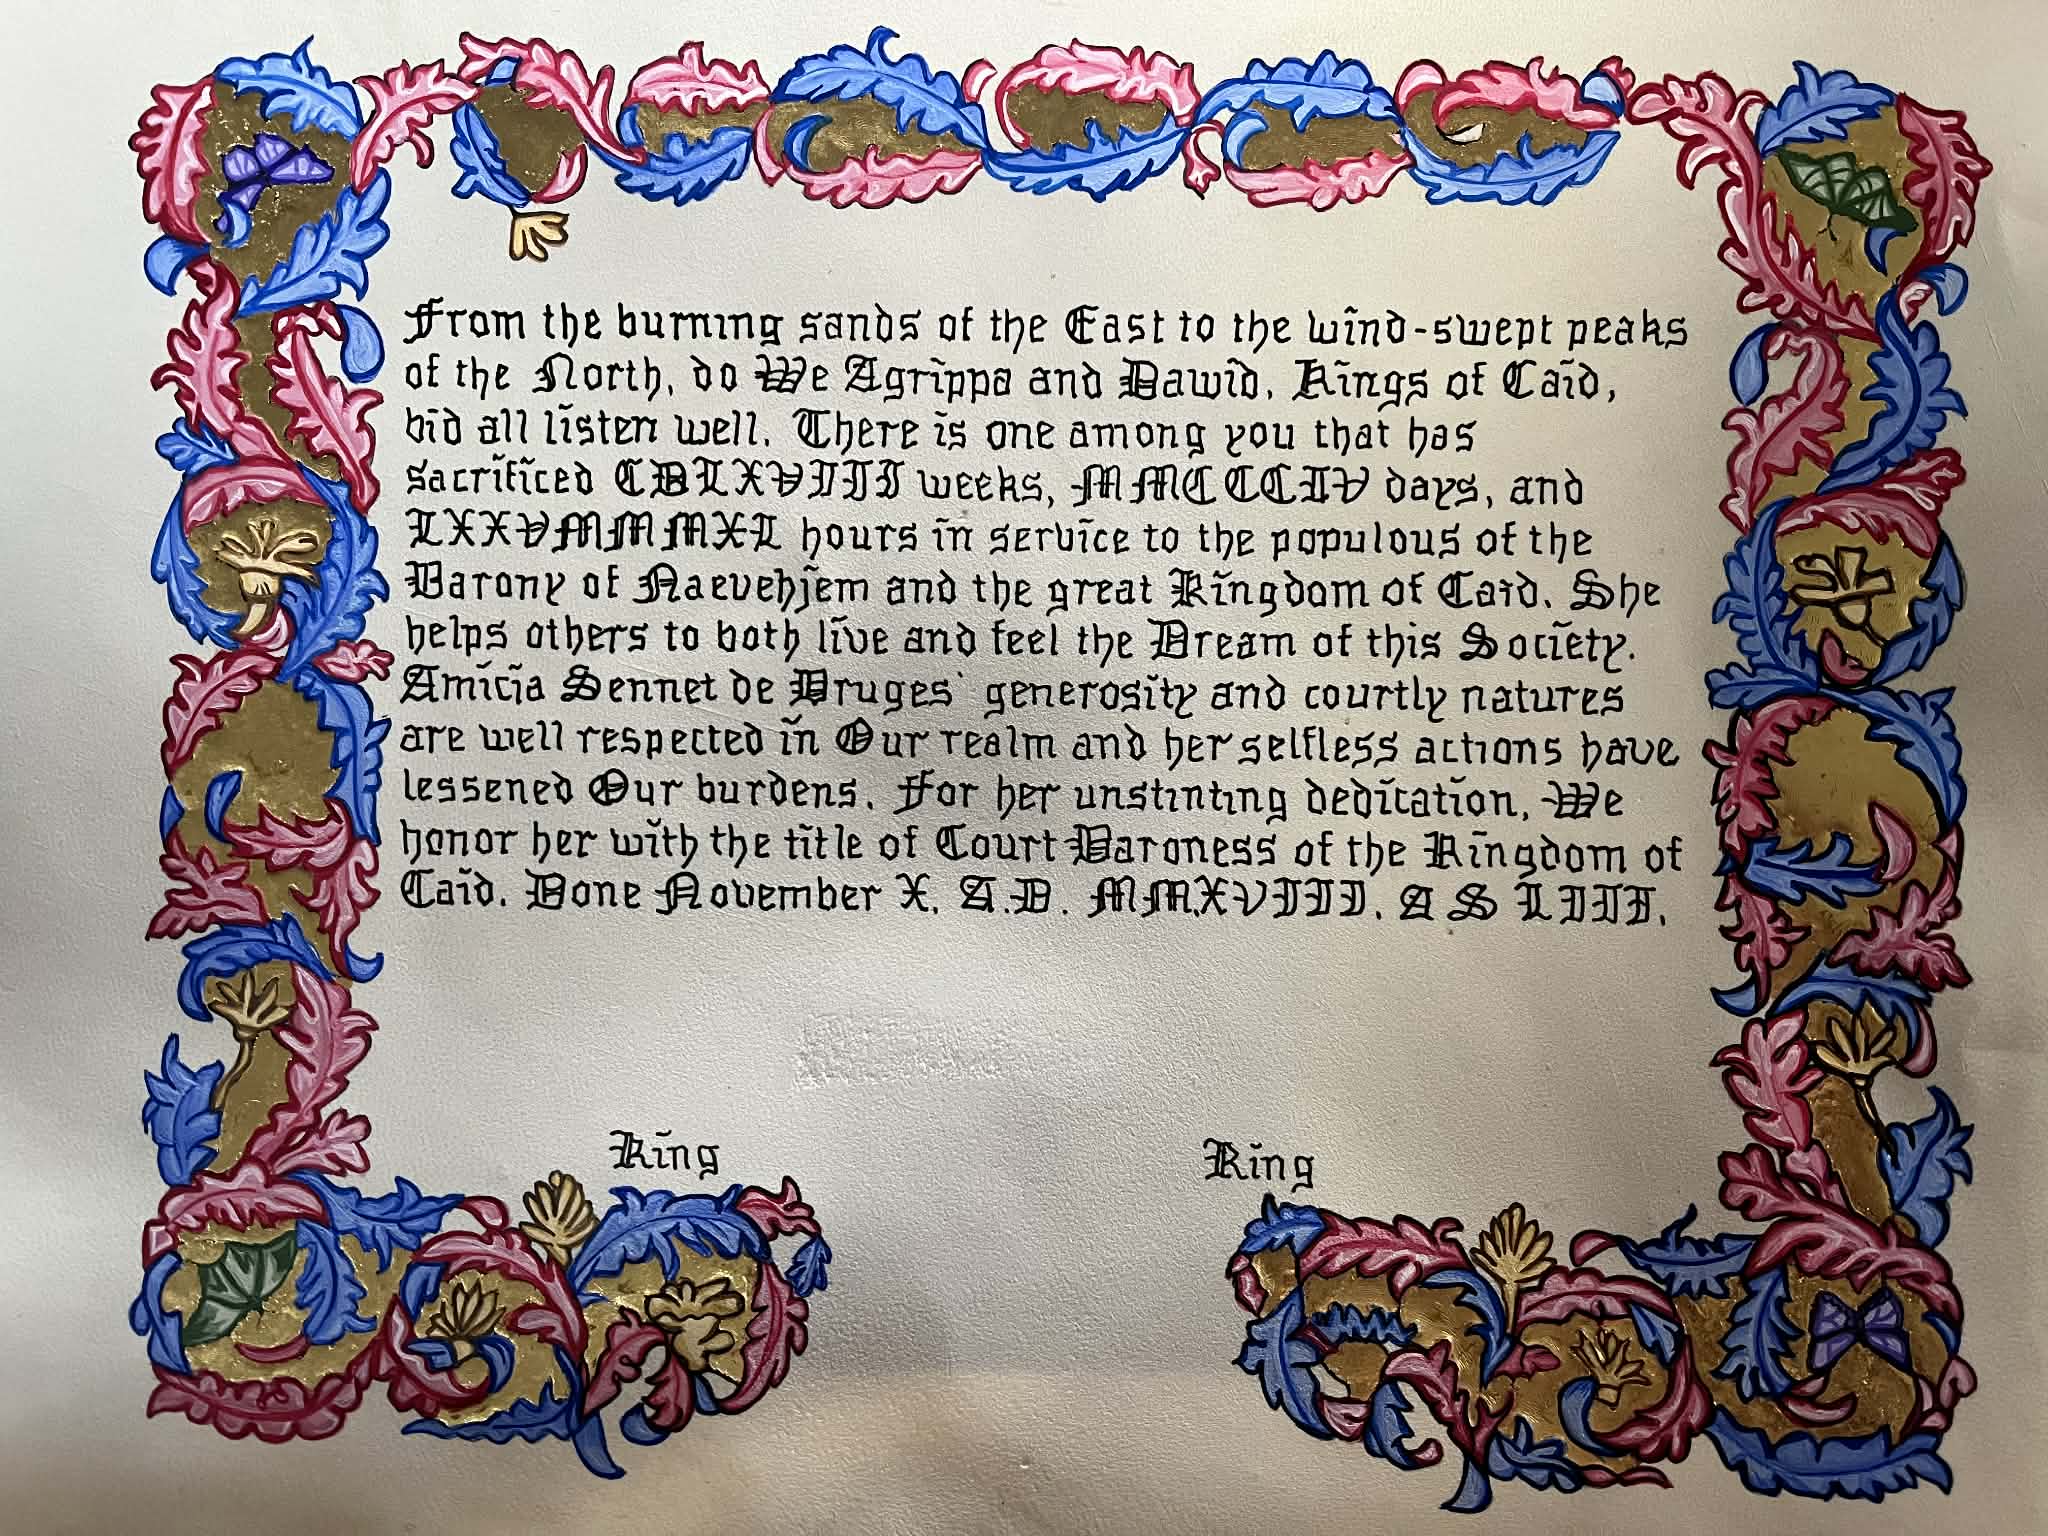 From the burning sands of the East to the wind-swept peaks
of the North, do We Agrippa and Dawid, Kings of Caid,
bid all listen well. There is one among you that has
sacrificed CDLXVIII weeks, MMCCCIV days, and
LXXVMMMXL hours in service to the populous of the
Barony of Naevehjem and the great Kingdom of Caid. She
helps others to both live and feel the Dream of this Society.
Amicia Sennet de Bruges' generosity and courtly natures
are well respected in Our realm and her selfless actions have
lessened Our burdens. For her unstinting dedication, We
honor her with the title of Court Baroness of the Kingdom of
Caid. Done November X, A.D. MMXVIII, A S LIII.
King King